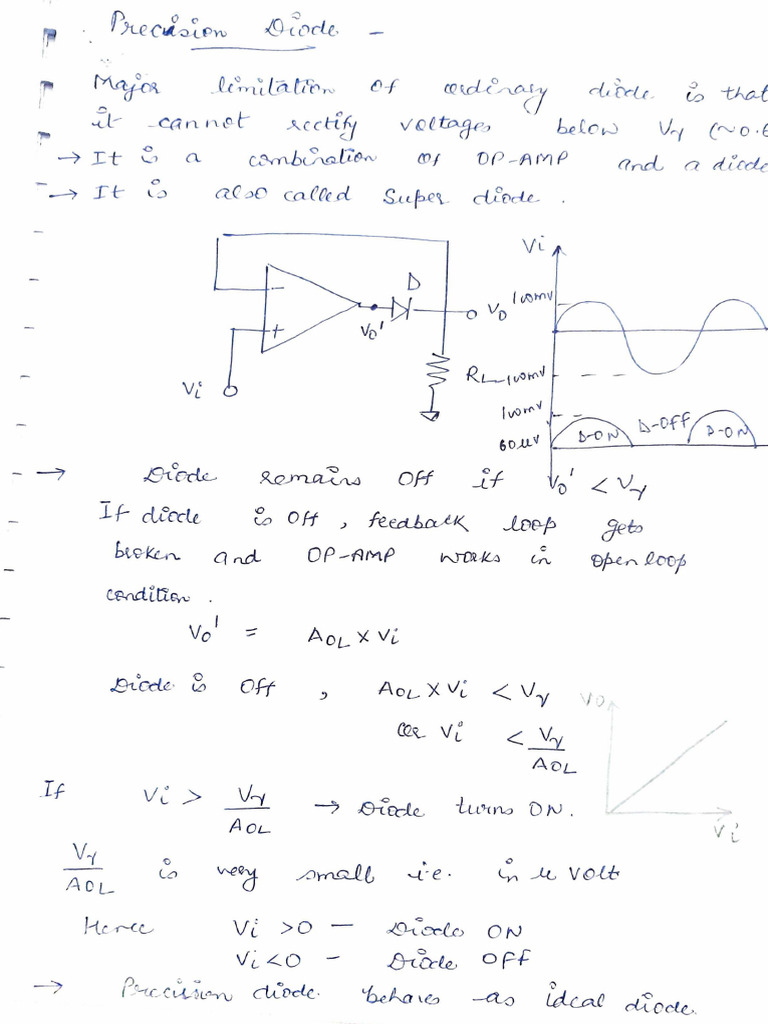 Precision Diode -
Major limitation of ordinary diode is that
it cannot rectify voltages below Vγ (~0.6
→ It is a combination of OP-AMP and a diode
→ It is also called Super diode.
Vi
D
-
+
Vo'
Vo
100mv
Vi
RL
-100mv
100mv
60μv
D-ON
D-OFF
D-ON
→ Diode remains Off if Vo' < Vγ
If diode is Off, feedback loop gets
broken and OP-AMP works in open loop
condition.
Vo' = AOL X Vi
Diode is Off, AOL X Vi < Vγ
or Vi < Vγ/AOL
Vo
Vi
If Vi > Vγ/AOL → Diode turns ON.
Vγ/AOL is very small i.e. in μ volt
Hence Vi >0 - Diode ON
Vi<0 - Diode OFF
→ Precision diode behaves as ideal diode.